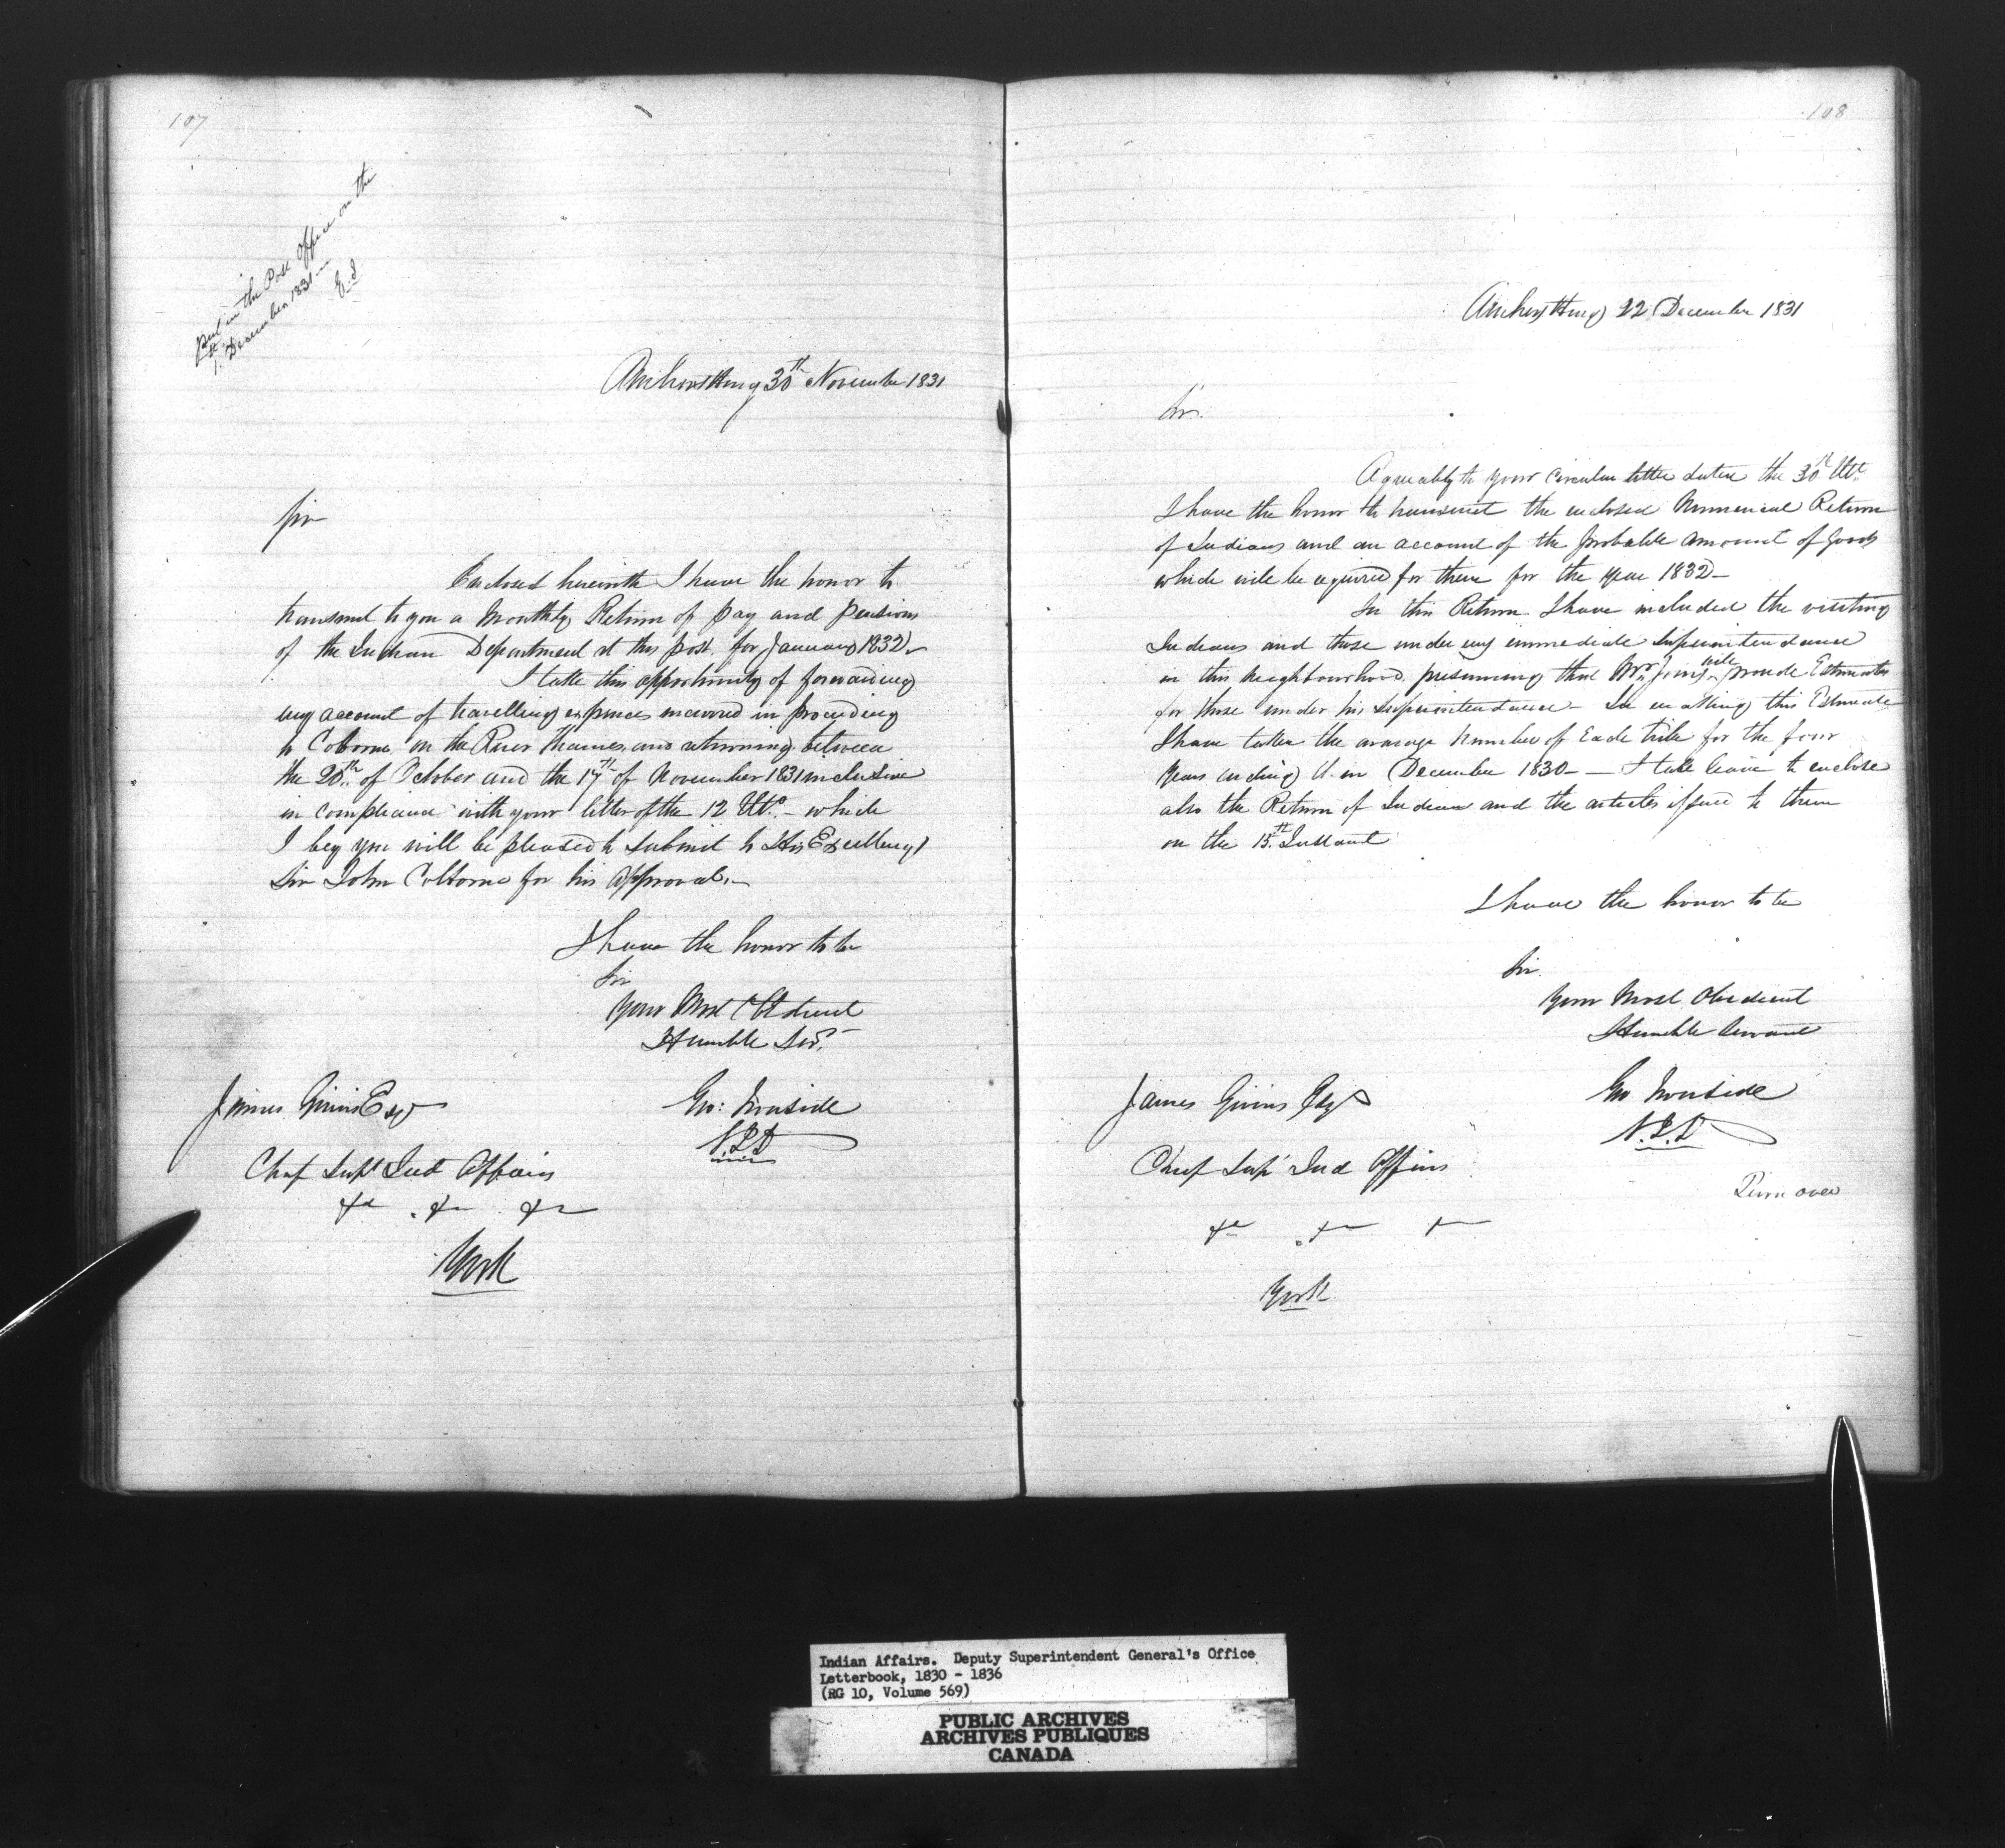 107
Put in the Post Office on the
1st December 1831 —
G. I
Amherstburg 30th November 1831
Sir
Enclosed herewith I have the honor to
transmit to you a Monthly Return of pay and pensions
of the Indian Department at this post, for January 1832 —
I take this opportunity of forwarding
my account of travelling expences incurred in proceeding
to Colborne, on the River Thames, and returning, between
the 20th of October and the 17th of November 1831 inclusive
in compliance with your letter of the 12 Ulto. — which
I beg you will be pleased to submit to His Excellency
Sir John Colborne for his approval. —
I have the honor to be
Sir
Your Most Obedient
Humble Servt.
James Givins Esqr
Geo: Ironside
S.I.A
Chief Supt Ind Affairs
&c . &c . &c
York
108
Amherstburg 22 December 1831
Sir.
Agreeably to your circular letter dated the 30th Ulto.
I have the honor to transmit the enclosed Numerical Return
of Indians and an account of the probable amount of Goods
which will be required for them for the year 1832 —
In this Return I have included the visiting
Indians and those under my immediate Superintendance
in this neighbourhood, presuming that Mr. Jones will provide Estimates
for those under his Superintendance — In making this Estimate
I have taken the average number of Each tribe for the four
years ending in December 1830 — I take leave to enclose
also the Return of Indians and the articles issued to them
on the 15th. Instant
I have the honor to be
Sir.
Your Most Obedient
Humble Servant
James Givins Esqr
Geo Ironside
S.I.A
Chief Supt Ind Affairs
&c . &c &c
Turn over
York
Indian Affairs. Deputy Superintendent General's Office
Letterbook, 1830 - 1836
(RG 10, Volume 569)
PUBLIC ARCHIVES
ARCHIVES PUBLIQUES
CANADA